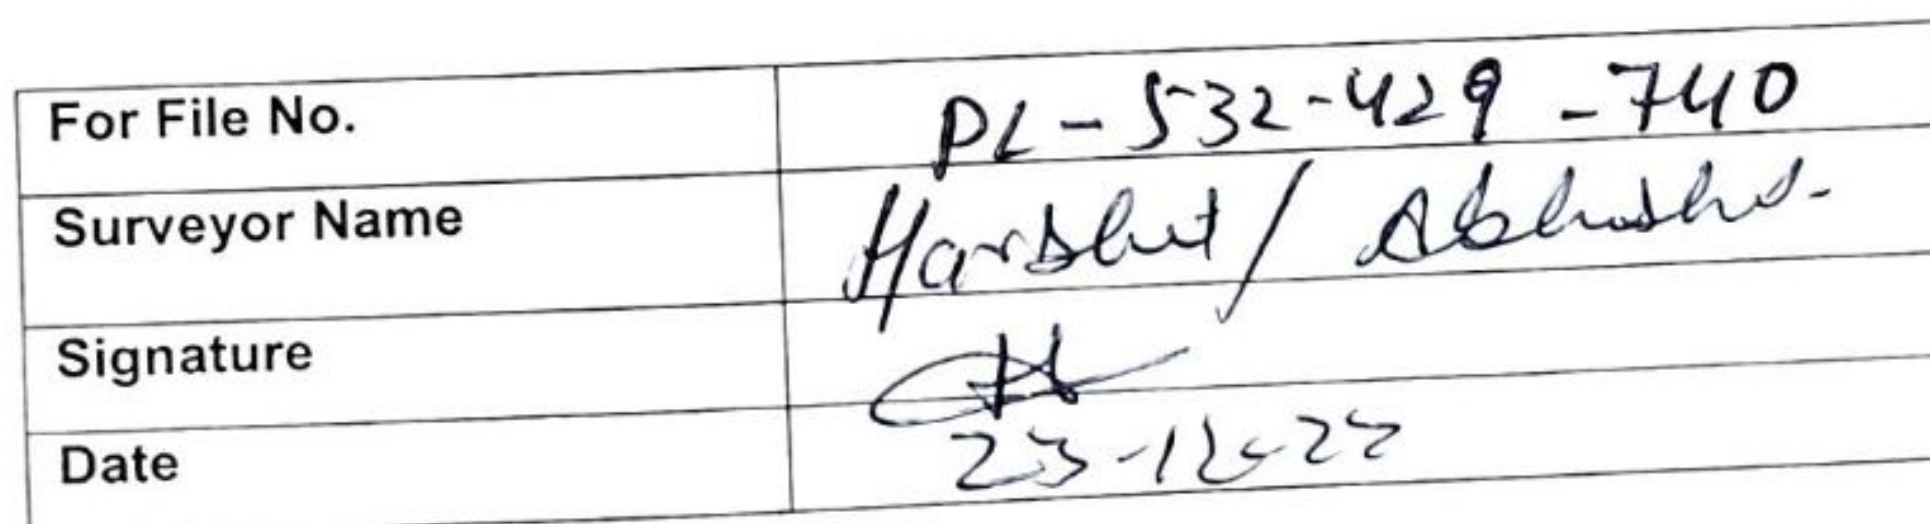 For File No. PL-532-429-740
Surveyor Name Harshit /
Signature
Date 23-12-22